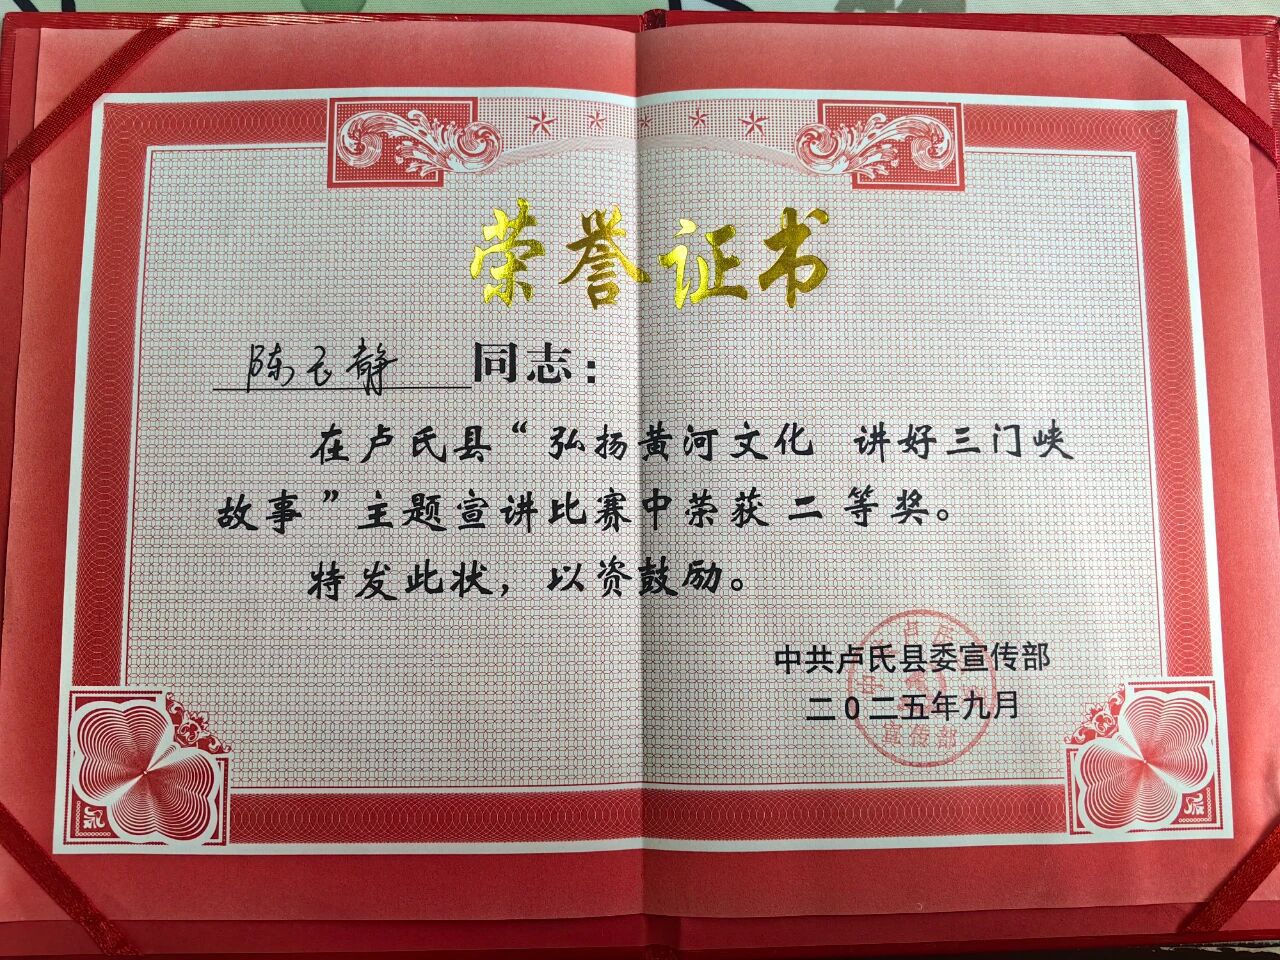 荣誉证书
陈飞静 同志：
在卢氏县“弘扬黄河文化 讲好三门峡
故事”主题宣讲比赛中荣获 二 等奖。
特发此状，以资鼓励。
中共卢氏县委宣传部
二0二五年九月
宣传部